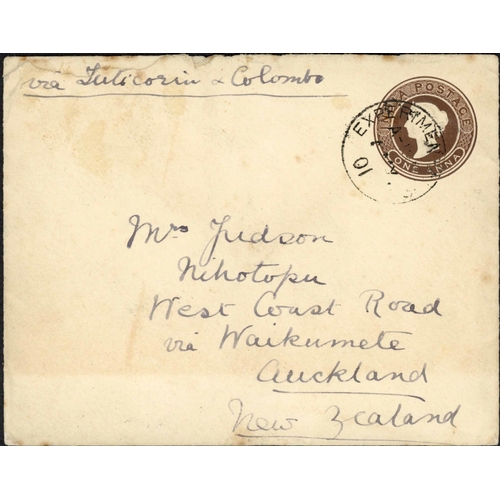 via Tuticorin & Colombo
INDIA POSTAGE
ONE ANNA
EXPERIMEN
10
Mrs Judson
Nihotopu
West Coast Road
via Waikumete
Auckland
New Zealand